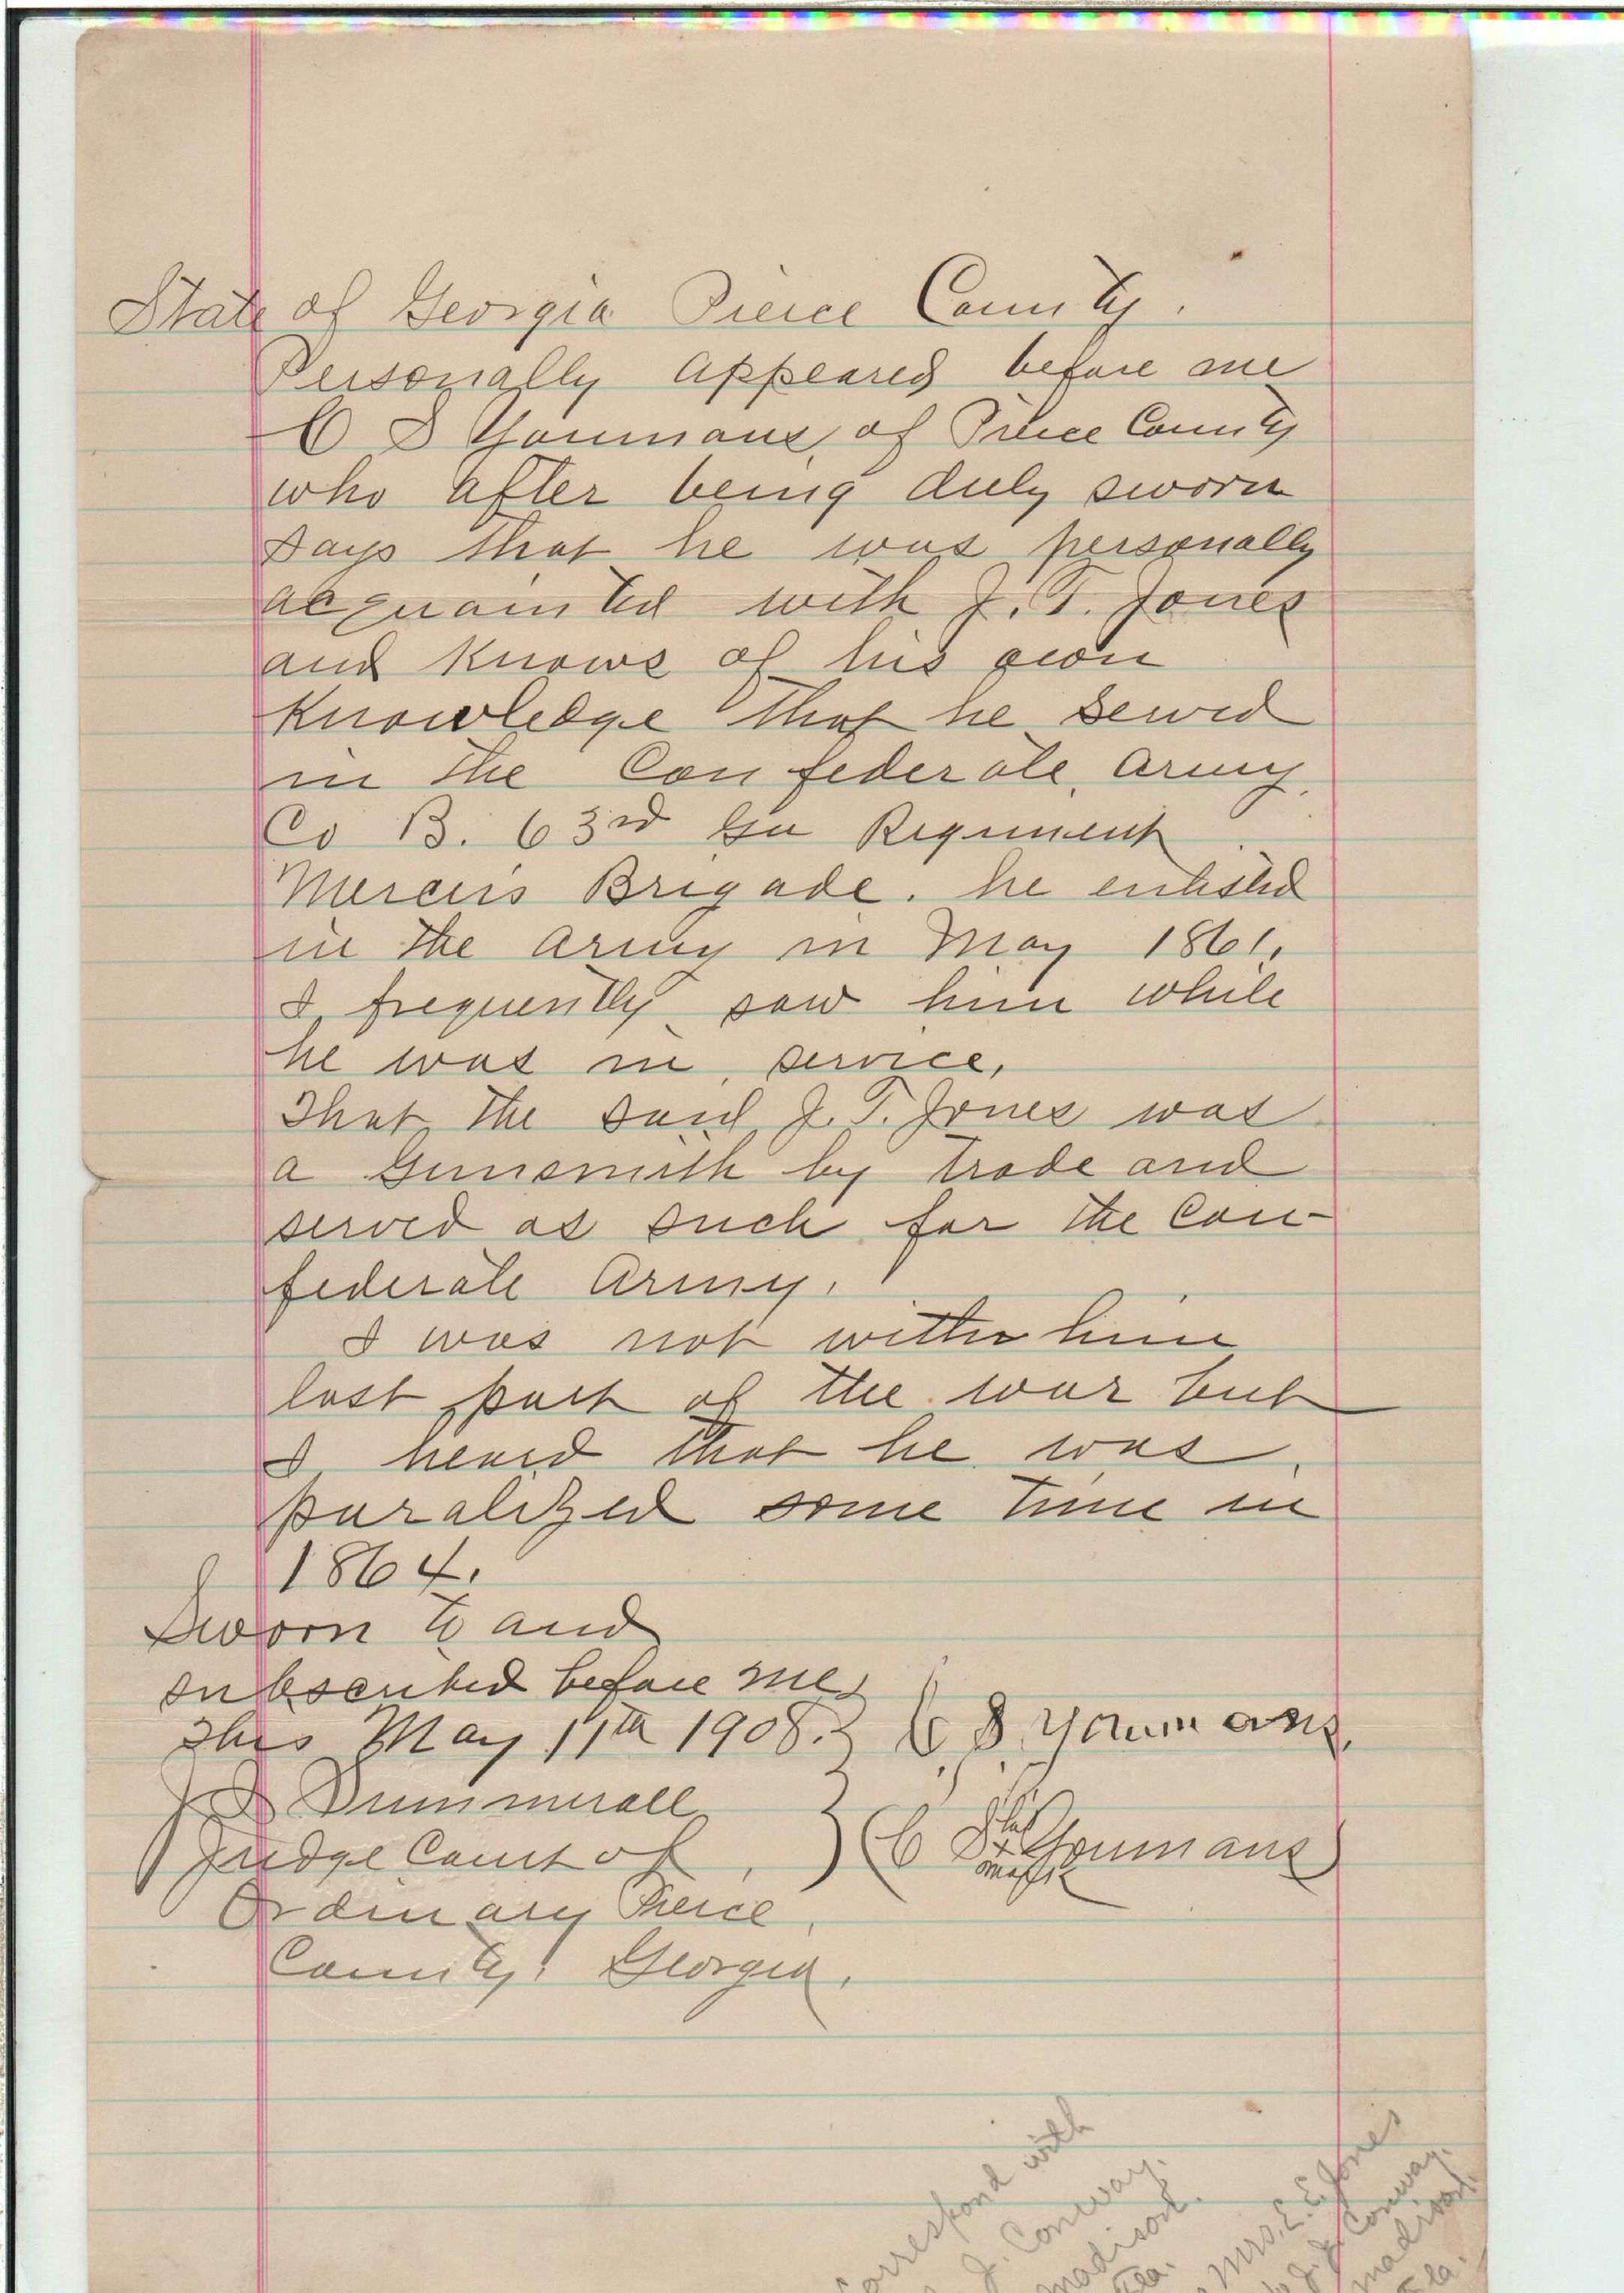 State of Georgia Pierce County.
Personally appeared before me
C S Youmans, of Pierce County
who after being duly sworn
says that he was personally
acquainted with J. T. Jones
and knows of his own
knowledge that he served
in the Confederate Army.
Co B. 63rd Ga Regiment
Mercers Brigade. he enlisted
in the army in May 1861.
I frequently saw him while
he was in service,
That the said J. T. Jones was
a Gunsmith by trade and
served as such for the Con-
federate Army.
I was not with him
last part of the war but
I heard that he was
paralized some time in
1864.
Sworn to and
subscribed before me
This May 11th 1908.
C S Youmans,
Summerall
Judge Court of
Ordinary Pierce
County, Georgia.
(C S his x mark Youmans)
Correspond with
J. Conway.
Madison.
Fla.
Mrs. E. E. Jones
J. J. Conway.
Madison.
Fla.